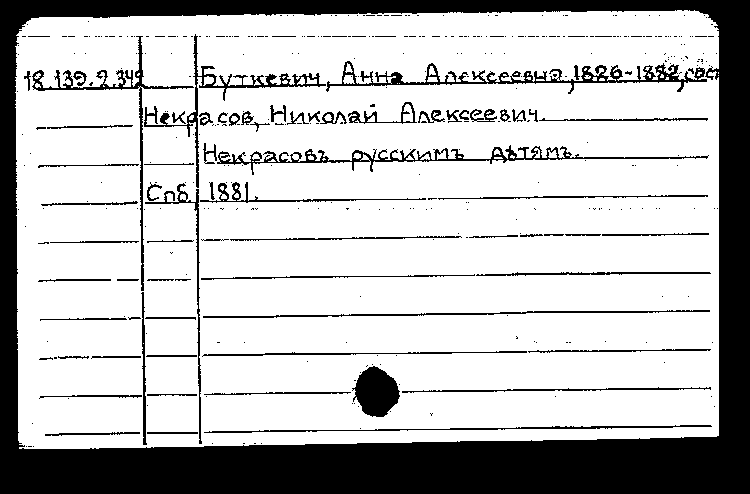 18.139.2.342 Буткевич, Анна Алексеевна, 1826-1882, сост
Некрасов, Николай Алексеевич.
Некрасовъ русскимъ дѣтямъ.
Спб. 1881.